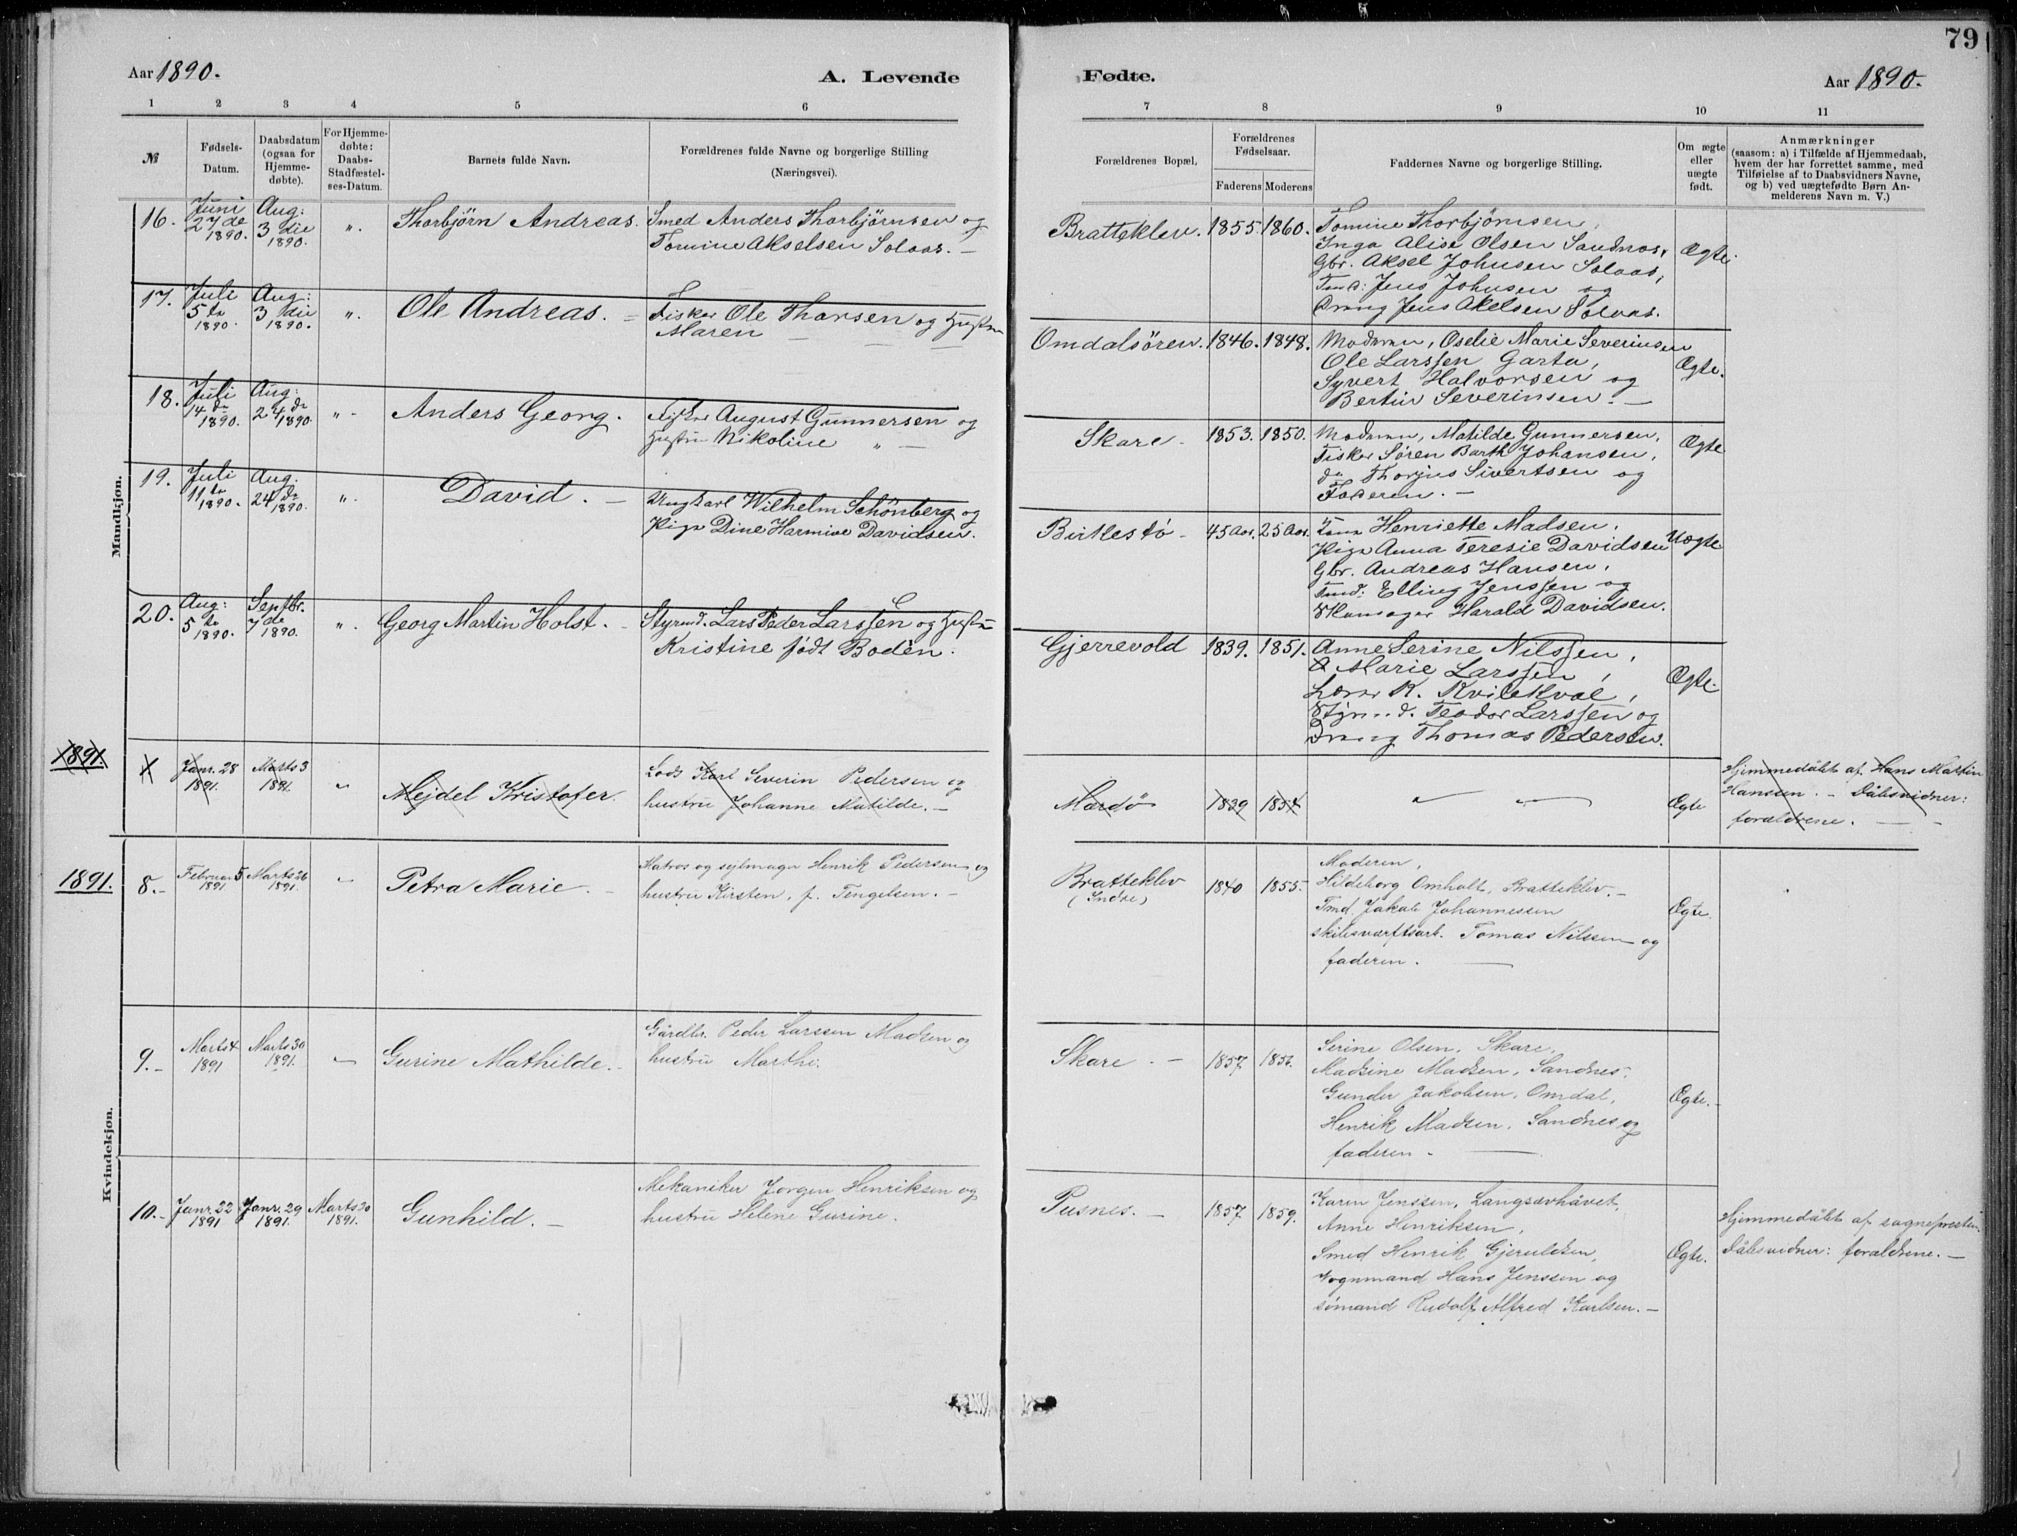 79
Aar 1890.
A. Levende
Fødte.
Aar 1890.
1 2 3 4 5 6 7 8 9 10 11
№
Fødsels-
Datum.
Daabsdatum
(ogsaa for
Hjemme-
døbte).
For Hjemme-
døbte:
Daabs-
Stadfæstel-
ses-Datum.
Barnets fulde Navn.
Forældrenes fulde Navne og borgerlige Stilling
(Næringsvei).
Forældrenes Bopæl.
Forældrenes
Fødselsaar.
Faderens Moderens
Faddernes Navne og borgerlige Stilling.
Om ægte
eller
uægte
født.
Anmærkninger
(saasom: a) i Tilfælde af Hjemmedaab,
hvem der har forrettet samme, med
Tilføielse af to Daabsvidners Navne,
og b) ved uægtefødte Børn An-
melderens Navn m. V.)
Mandkjøn.
16.
Juni
27de
1890.
Aug:
3die
1890.
".
Thorbjörn Andreas.
Smed Anders Thorbjörnsen og
Tomine Akselsen Solaas. –
Bratteklev. 1855. 1860.
Tomine Thorbjörnsen,
Inga Alise Olsen Sandnæs,
Gbr. Aksel Johnsen Solaas,
Tmd: Jens Johnsen og
Dreng Jens Akelsen Solaas.
Ægte.
17.
Juli
5te
1890.
Aug:
3die
1890.
".
Ole Andreas. –
Fisker Ole Thorsen og Hustru
Maren – – –
Omdalsören. 1846. 1848.
Moderen, Oselie Marie Severinsen
Ole Larssen Garta,
Syvert Halvorsen og
Bertin Severinsen. –
Ægte.
18.
Juli
14de
1890.
Aug:
24de
1890.
".
Anders Georg.
Fisker August Gunnersen og
Hustru Nikoline " –
Skare – 1853. 1850.
Moderen, Matilde Gunnersen,
Fisker Søren Barth Johansen,
do Thorjus Sivertsen og
Faderen. –
Ægte
19.
Juli
11te
1890.
Aug.
24de
1890.
".
David. –
Ungkarl Wilhelm Schönberg og
Pige Dine Harmine Davidsen.
Birkestö – 45 Aar. 25 Aar.
Kona Henriette Madsen,
Pige Anna Teresie Davidsen
Gbr. Andreas Hansen,
Tmd: Elling Jenssen og
Skomager Harald Davidsen.
Uægte
20.
Aug:
5te
1890.
Septbr.
7de
1890.
".
Georg Martin Holst. –
Styrmd. Lars Peder Larssen og Hustru
Kristine født Bodèn.
Gjerrevold 1839. 1851.
Anne Serine Nilssen,
Marie Larssen,
Lærer K. Kvilekval,
Styrmd. Teodor Larssen og
Dreng Thomas Pedersen.
Ægte.
1891.
Janr. 28
1891.
Marts 3
1891.
"
Mejdel Kristofer.
Lods Karl Severin Pedersen og
hustru Johanne Matilde. –
Mardö 1839 1854
" "
Ægte
Hjemmedöbt af Hans Martin
Hanssen. – Dåbsvidner:
forældrene. –
Kvindekjøn.
1891.
8. –
Februar 5
1891
Marts 26
1891.
"
Petra Marie –
Matros og sejlmager Henrik Pedersen og
hustru Kirsten, f. Tengelsen. –
Bratteklev
(Indre)
1840 1855
Moderen,
Hildeborg Omholt, Bratteklev. –
Tmd. Jakob Johannessen
skibsværftsarb. Tomas Nilssen og
faderen. –
Ægte.
9. –
Marts 4
1891
Marts 30
1891.
"
Gurine Mathilde. –
Gårdbr. Peder Larssen Madsen og
hustru Marthe.
Skare. – 1857
Serine Olsen, Skare,
Madsine Madsen, Sandnes.
Gunder Jakobsen, Omdal,
Henrik Madsen, Sandnes og
faderen. –
Ægte. –
10. –
Janr. 22
1891
Janr. 29
1891.
Marts 30
1891.
Gunhild. –
Mekaniker Jørgen Henriksen og
hustru Helene Gurine.
Pusnes. – 1857 1859.
Karen Jenssen, Langsævhåvet,
Anne Henriksen,
Smed Henrik Gjeruldsen,
Vognmand Hans Jenssen og
sömand Rudolf Alfred Karlsen. –
Ægte.
Hjemmedöbt af sognepresten.
Dåbsvidner: forældrene. –